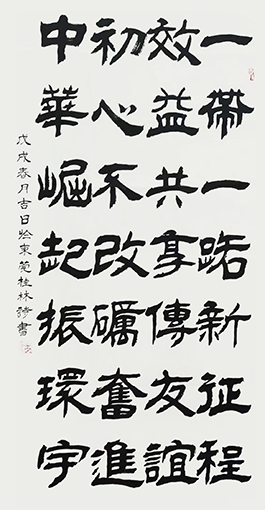 一帶一路新征程
效益共享傳友誼
初心不改礪奮進
中華崛起振環宇
戊戌春月吉日於東莞桂林書